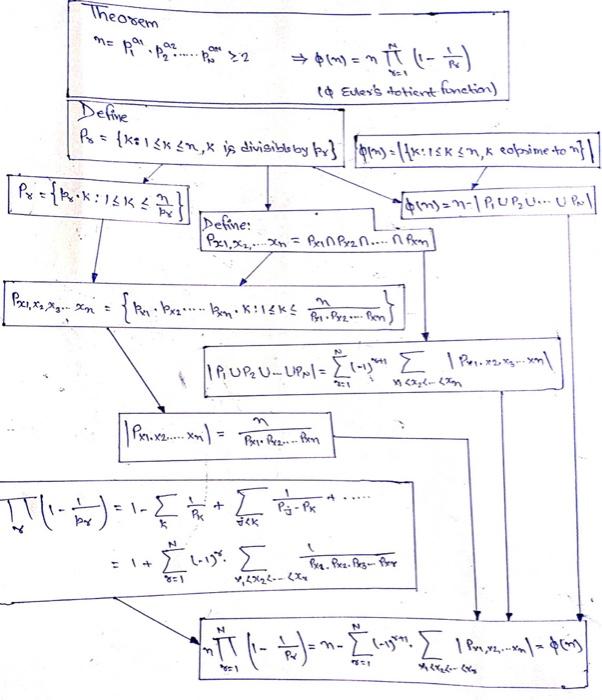 Theorem
n = p₁^a₁ · p₂^a₂ ..... p_N^aN ≥ 2 ⇒ ϕ(n) = n ∏_{r=1}^{N} (1 - 1/p_r)
(ϕ Euler's totient function)
Define
P_r = {k: 1 ≤ k ≤ n, k is divisible by p_r}
ϕ(n) = |{k: 1 ≤ k ≤ n, k coprime to n}|
P_r = {p_r · k : 1 ≤ k ≤ n/p_r}
ϕ(n) = n - |P₁ ∪ P₂ ∪ ... ∪ P_N|
Define:
P_{x1,x2,...xn} = P_{x1} ∩ P_{x2} ∩ .... ∩ P_{xn}
P_{x1,x2,x3...xn} = {p_{x1} · p_{x2} ..... p_{xn} · k : 1 ≤ k ≤ n/(p_{x1} · p_{x2} .... p_{xn})}
|P₁ ∪ P₂ ∪ ... ∪ P_N| = ∑_{r=1}^{N} (-1)^{r+1} ∑_{x1<x2<...<xn} |P_{x1,x2,x3...xn}|
|P_{x1,x2.....xn}| = n/(p_{x1} · p_{x2} .... p_{xn})
∏_r (1 - 1/p_r) = 1 - ∑_k 1/p_k + ∑_{j<k} 1/(p_j - p_k) + .....
= 1 + ∑_{r=1}^{N} (-1)^r · ∑_{x1<x2<...<xr} 1/(p_{x1} · p_{x2} · p_{x3} ... p_{xr})
n ∏_{r=1}^{N} (1 - 1/p_r) = n - ∑_{r=1}^{N} (-1)^{r+1} · ∑_{x1<x2<...<xr} |P_{x1,x2,...xn}| = ϕ(n)